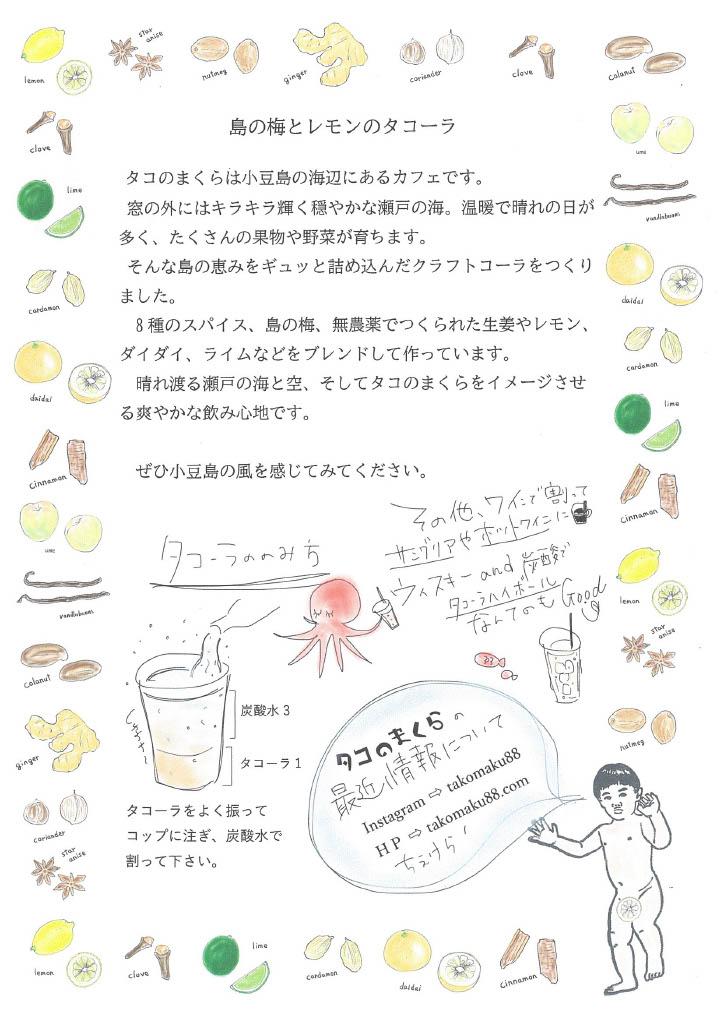 lemon
star anise
nutmeg
ginger
coriander
clove
colanut
clove
lime
cardamon
daidai
cinnamon
ume
vanillabeans
colanut
ginger
coriander
star anise
lemon
clove
lime
cardamon
daidai
cinnamon
ume
vanillabeans
daidai
cardamon
lime
cinnamon
lemon
star anise
nutmeg
島の梅とレモンのタコーラ
タコのまくらは小豆島の海辺にあるカフェです。
窓の外にはキラキラ輝く穏やかな瀬戸の海。温暖で晴れの日が
多く、たくさんの果物や野菜が育ちます。
そんな島の恵みをギュッと詰め込んだクラフトコーラをつくり
ました。
8種のスパイス、島の梅、無農薬でつくられた生姜やレモン、
ダイダイ、ライムなどをブレンドして作っています。
晴れ渡る瀬戸の海と空、そしてタコのまくらをイメージさせ
る爽やかな飲み心地です。
ぜひ小豆島の風を感じてみてください。
タコーラののみち
その他、ワインで割って
サングリアやホットワインに
ウィスキー and 炭酸で
タコーラハイボール
なんてのも Good
炭酸水 3
タコーラ 1
タコーラをよく振って
コップに注ぎ、炭酸水で
割って下さい。
タコのまくらの
最近情報について
Instagram ⇨ takomaku88
HP ⇨ takomaku88.com
ちぇけら!